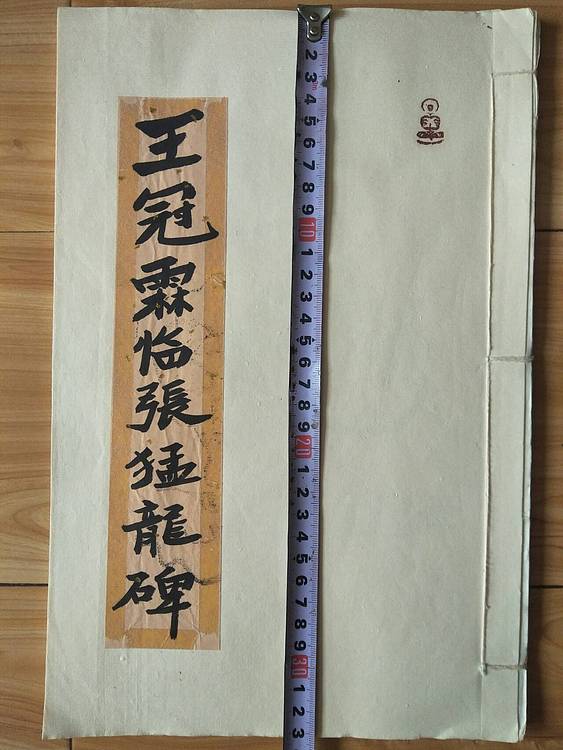 王冠霖临張猛龍碑
2 3 4 5 6 7 8 9 10 1 2 3 4 5 6 7 8 9 20 1 2 3 4 5 6 7 8 9 30 1 2 3